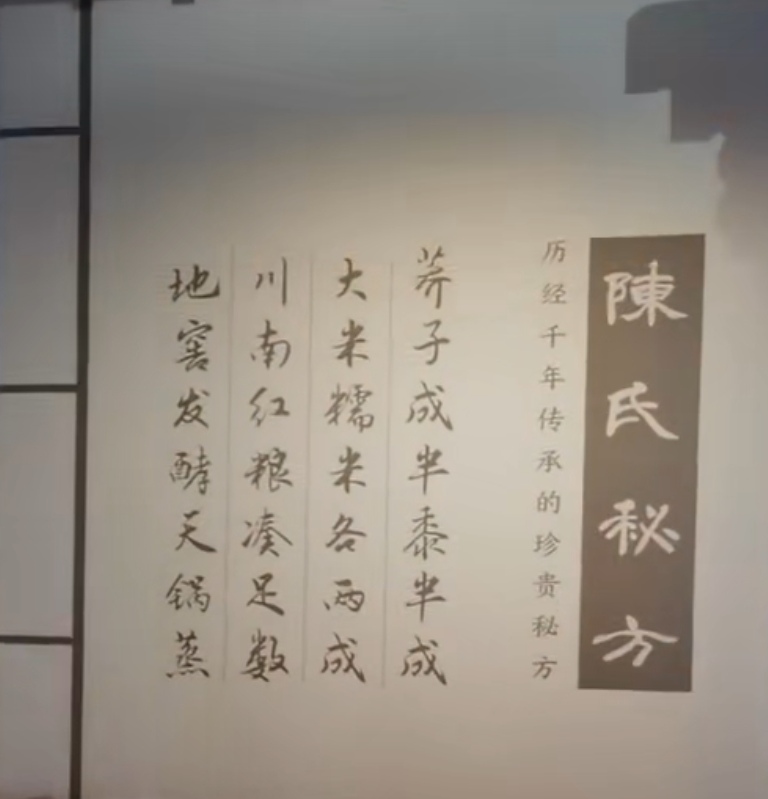 陳氏秘方
历经千年传承的珍贵秘方
荞子成半黍半成
大米糯米各两成
川南红粮凑足数
地窖发酵天锅蒸